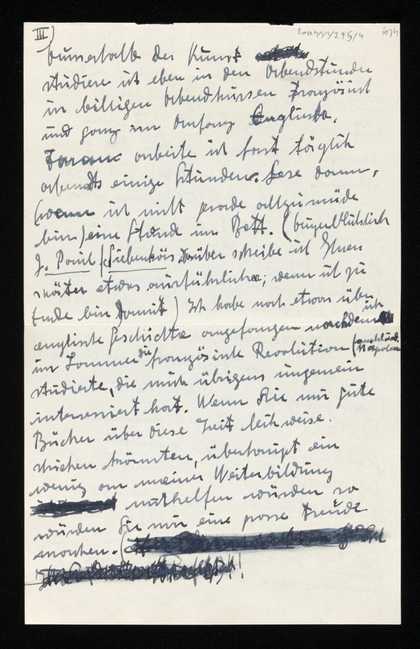 III)
Ausserhalb der Kunst
studiere ich eben in den Abendstunden
in billigen Abendkursen Französisch
und ganz am Anfang Englisch.
Daran arbeite ich fast täglich
abends einige Stunden. Lese dann,
(wenn ich nicht gerade allzumüde
bin) eine Stunde im Bett. (augenblicklich
J. Paul (Siebenkäs) darüber schreibe ich Ihnen
später etwas ausführlicher, wenn ich zu
Ende bin damit) Ich habe noch etwas über
englische Geschichte angefangen nachdem ich
im Sommer die französische Revolution
studierte, die mich übrigens ungemein
interessiert hat. Wenn Sie mir gute
Bücher über diese Zeit leihweise
schicken könnten, überhaupt ein
wenig an meiner Weiterbildung
mithelfen würden so
würden Sie mir eine grosse Freude
machen.